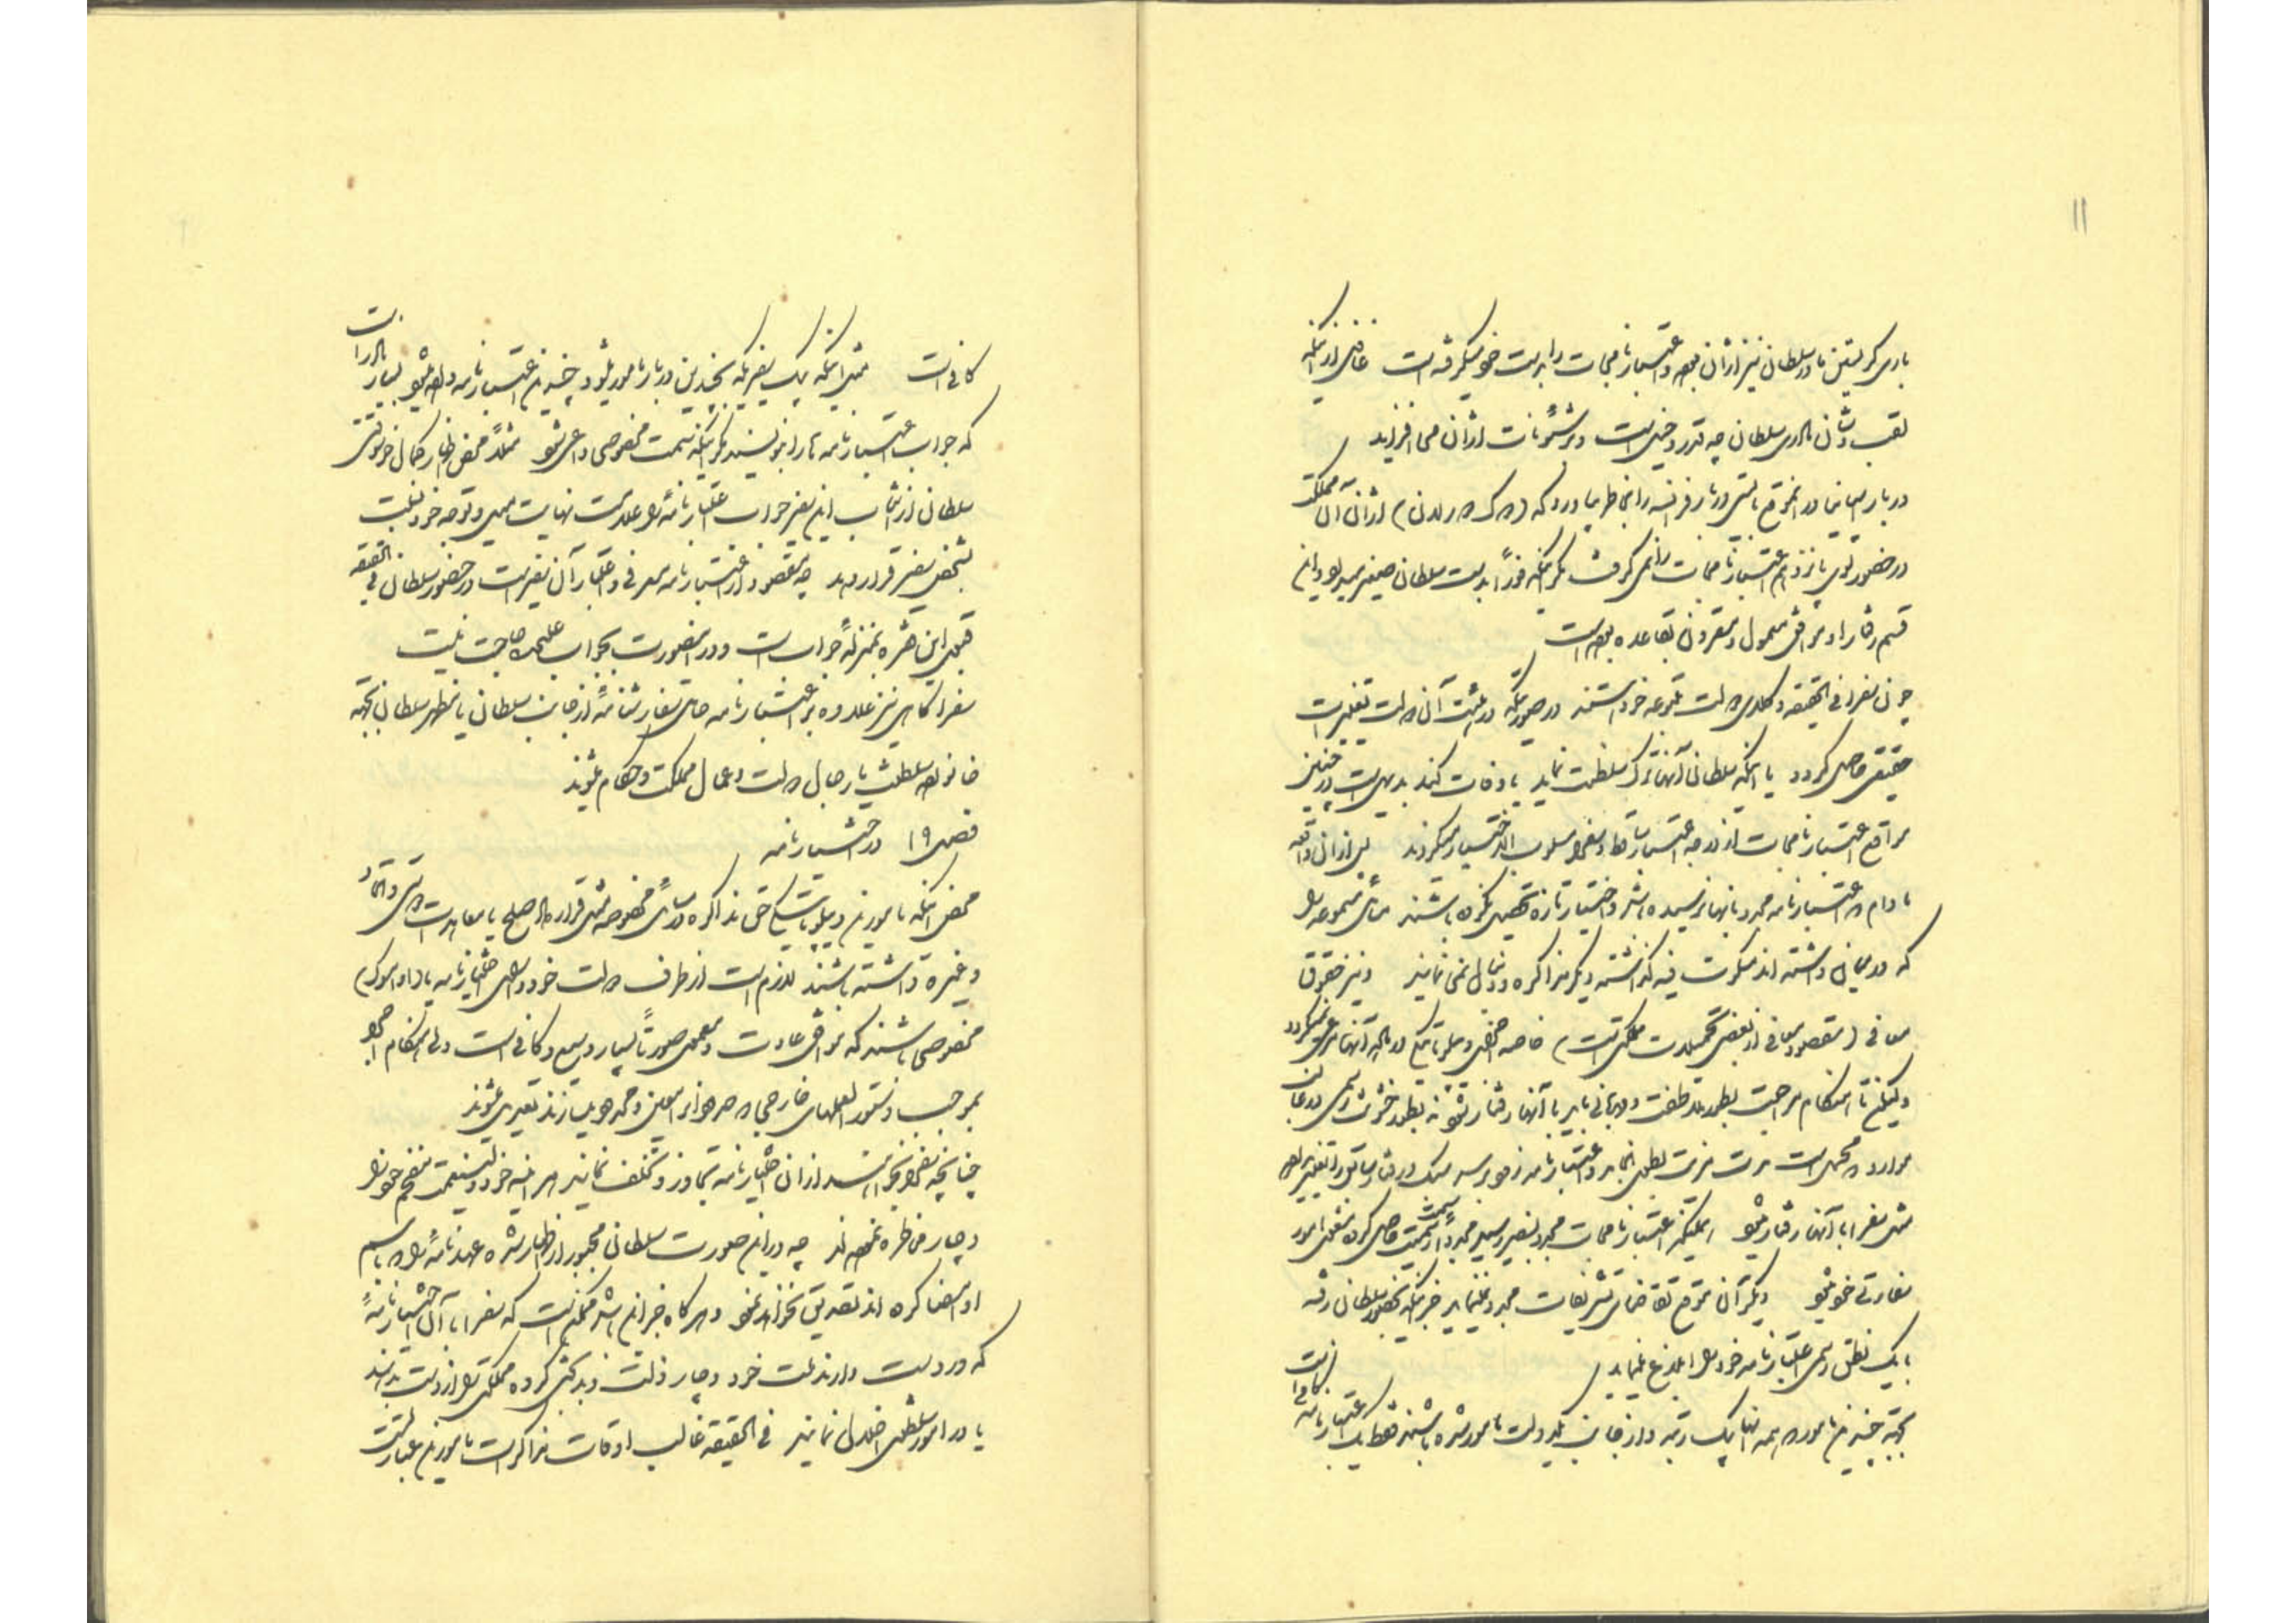 ۱۱
باری کریستین مادر سلطان نیز از آن بوده و اعتبارنامجات را بدست خود میگرفته است غافل از اینکه
لقب و شأن مادری سلطان چه قدر دخیل است و بر شئونات از آن می افزاید
دربار اسپانیا در آنموقع بایستی دربار فرانسه را بخاطر بیاورد که از آن آن مملکت
در حضور لوی پانزدهم اعتبارنامجات را نمی گرفت مگر اینکه فوراً بدست سلطان صغیر میداد و این
قسم رفتار او موافق معمول و مقرون بقاعده بوده است
چون سفرا فی الحقیقه وکلای دولت متبوعه خود هستند در صورتیکه در هیئت آن دولت تغییرات
حقیقی حاصل گردد یا اینکه سلطان آنها ترک سلطنت نماید یا وفات کند بدیهی است در چنین
مواقع اعتبارنامجات از درجه اعتبار ساقط و سفرا مسلوب الاختیار میگردند پس از آن واقعه
مادام که اعتبارنامه مجدد بآنها نرسیده باشد و اختیار تازه تحصیل نکرده باشند مسائل متنوعه را
که در میان داشته اند مسکوت فیه گذاشته دیگر مذاکره و دنبال نمی نمایند و نیز حقوق
معافی (مقصود معافی از بعضی تحمیلات مملکتی است) خاصه اجزای دیپلماتیک در باره آنها مرعی نمیگردد
ولیکن تا هنگام مراجعت بطور ملاطفت و مهربانی باید با آنها رفتار شود نه بطور خشونت و رسمی در غالب
موارد که محتمل است مدت مدیدی بطول انجامد و اعتبارنامه زود برسد مسلک و رفتار سابق را تغییر نداده
مثل سفرا با آنها رفتار میشود همینکه اعتبارنامجات مجدد بسفیر رسید مجدداً رسمیت حاصل کرده مشغول امور
سفارتی خود میشود دیگر آن موقع تقاضای تشریفات مجدد نمینماید جز اینکه بحضور سلطان رفته
با یک نطق رسمی اعتبارنامه خود را ابلاغ مینماید
بجهة چندین مأمور که همه آنها یک رتبه و از جانب یک دولت مأمور شده باشند فقط یک اعتبارنامه کافی است
کافی است مثل اینکه یک سفیر که بچندین دربار مأمور میشود چندین اعتبارنامه داده میشود بسیار نادر است
که جواب اعتبارنامه ها را بنویسند مگر اینکه سمت مخصوصی داعی شود مثلاً محض اظهار کمال خوشوقتی
سلطان از انتخاب این سفیر جواب اعتبارنامه را علامت نهایت میل و توجه خود نسبت
بشخص سفیر قرار دهد چه مقصود از اعتبارنامه معرفی و اعتبار آن سفیر است در حضور سلطان فی الحقیقه
قبول این فقره بمنزلهٔ جواب است و در اینصورت بجواب علیحده حاجت نیست
سفرا گاهی نیز علاوه بر اعتبارنامه حامل سفارشنامهٔ از جانب سلطان یا منظر سلطان بجهة
خانواده سلطنت یا رجال دولت و عمال مملکت و حکام میشوند
فصل ۱۹ در اختیارنامه
محض اینکه مأمورین دیپلماتیک حق مذاکره در مسائل مخصوصه مثل قرارداد صلح یا معاهدات دوستی و اتحاد
و غیره داشته باشند لازم است از طرف دولت خود دارای اختیارنامه
مخصوصی باشند که موافق عادت و معمول صورتاً بسیار وسیع و کافی است ولی هنگام اجرا
بموجب دستورالعملهای خارجی محدود میسازند تعبیر میشوند
چنانچه سفرا بخواهند از آن اختیارنامه تجاوز و تخلف نمایند هر آینه خود و ولینعمت مفخم خود را
دچار مخاطره نموده اند چه در این صورت سلطان مجبور از اظهار شده عهدنامهٔ را که باسم
او امضا کرده اند تصدیق نخواهد نمود و هر گاه جز این باشد ممکن است که سفرا با آن اختیارنامهٔ
که در دست دارند ملت خود را دچار ذلت و بدبختی کرده مملکتی را از دست بدهند
یا در امور سلطنتی اخلال نمایند فی الحقیقه غالب اوقات مذاکرات مأمورین عبارتست